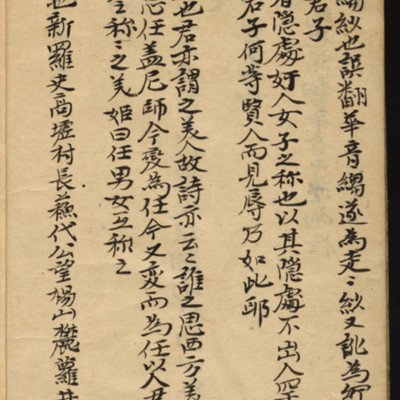 縐紗也誤翻華音縐遂為走〻紗又訛為
君子
者隱處奸人女子之称也以其隱處不出入
君子何等賢人而見辱乃如此耶
也君亦謂之美人故詩亦云云誰之思西方美
忍任盖尼師今變為任今又変而為任以人君
之称〻之美姬曰任男女互称之
也新羅史高墟村長蘓代公望楊山麓蘿井